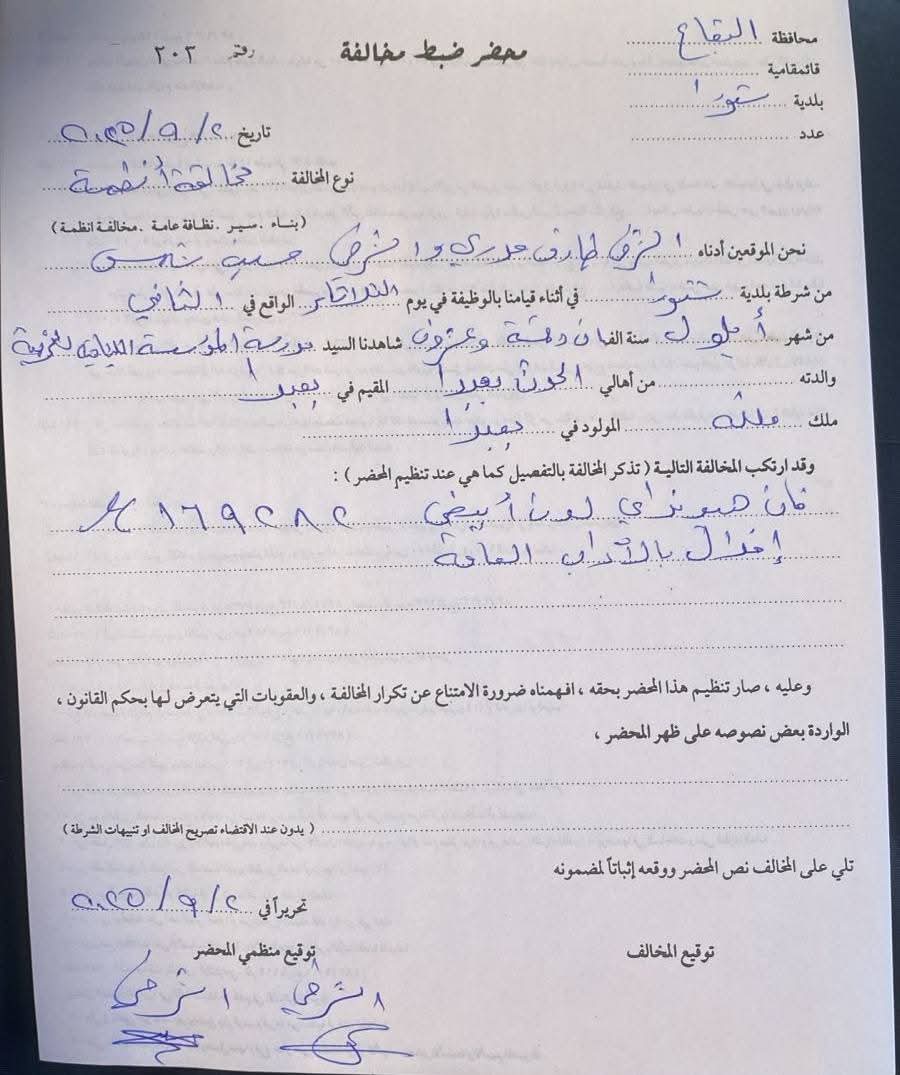 محافظة البقاع
محضر ضبط مخالفة رقم ٢٠٣
قائمقامية
بلدية شتورا
عدد
تاريخ ٢ / ٩ / ٢٠٢٥
نوع المخالفة مخالفة أنظمة
(بناء . سير . نظافة عامة . مخالفة انظمة)
نحن الموقعين أدناه الشرطي طارق والشرطي حسين شمس
من شرطة بلدية شتورا في أثناء قيامنا بالوظيفة في يوم الثلاثاء الواقع في الثاني
من شهر أيلول سنة الفان وخمسة وعشرون شاهدنا السيد مدرسة المؤسسة اللبنانية
والدته من أهالي الحدث بعبدا المقيم في بعبدا
ملك ملكه المولود في بعبدا
وقد ارتكب المخالفة التالية (تذكر المخالفة بالتفصيل كما هي عند تنظيم المحضر) :
فان هيونداي لون أبيض ١٦٩٢٨٢ / M
إخلال بالآداب العامة
وعليه ، صار تنظيم هذا المحضر بحقه ، افهمناه ضرورة الامتناع عن تكرار المخالفة ، والعقوبات التي يتعرض لها بحكم القانون ،
الواردة بعض نصوصه على ظهر المحضر ،
(يدون عند الاقتضاء تصريح المخالف او تنبيهات الشرطة)
تلي على المخالف نص المحضر ووقعه إثباتاً لمضمونه
تحريراً في ٢ / ٩ / ٢٠٢٥
توقيع المخالف توقيع منظمي المحضر
الشرطي الشرطي